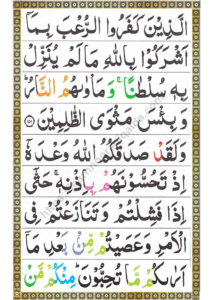 الَّذِيْنَ كَفَرُوا الرُّعْبَ بِمَاۤ
اَشْرَكُوْا بِاللّٰهِ مَا لَمْ يُنَزِّلْ
بِهٖ سُلْطٰنًا ۚ وَمَاْوٰىهُمُ النَّارُ ؕ
وَبِئْسَ مَثْوَى الظّٰلِمِيْنَ ﴿۱۵۱﴾
وَلَقَدْ صَدَقَكُمُ اللّٰهُ وَعْدَهٗۤ
اِذْ تَحُسُّوْنَهُمْ بِاِذْنِهٖ ۚ حَتّٰۤى
اِذَا فَشِلْتُمْ وَتَنَازَعْتُمْ فِى
الْاَمْرِ وَعَصَيْتُمْ مِّنْۢ بَعْدِ مَاۤ
اَرٰىكُمْ مَّا تُحِبُّوْنَ ؕ مِنْكُمْ مَّنْ